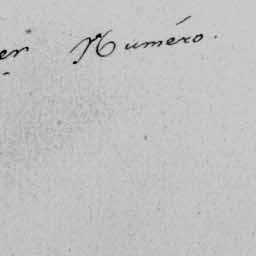 er Numéro.